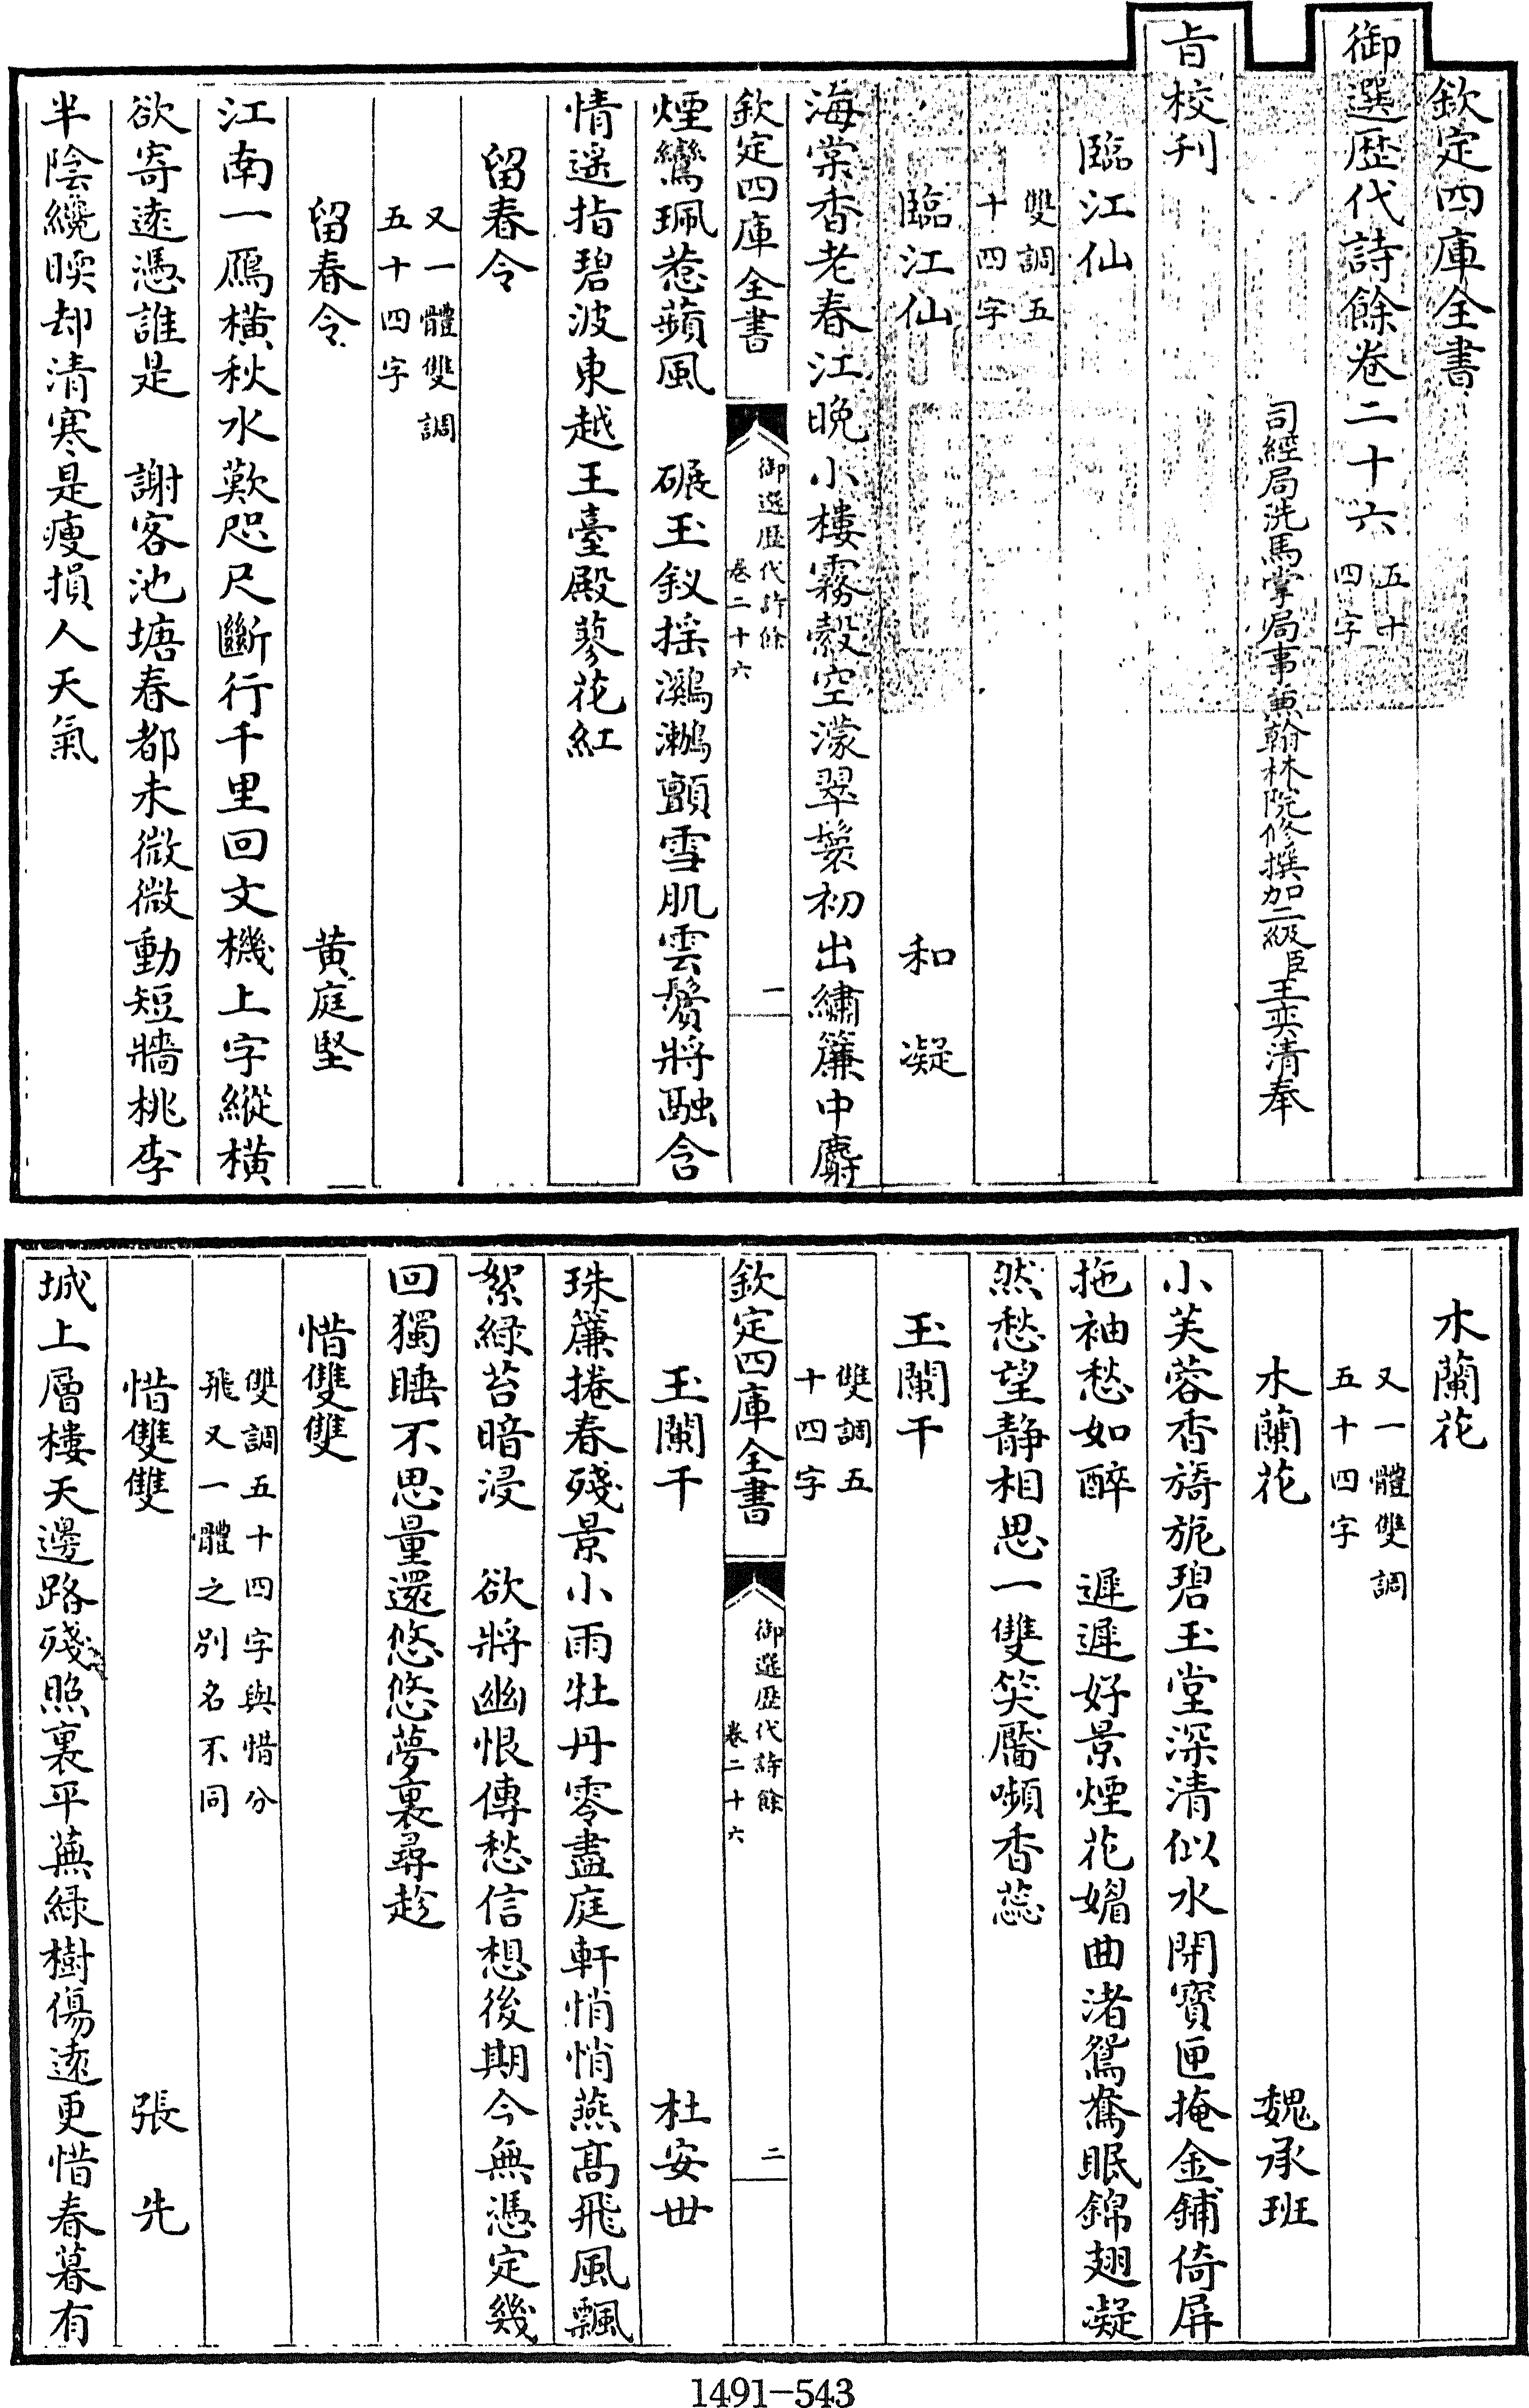 欽定四庫全書
御選歴代詩餘卷二十六 五十四字
司經局洗馬掌局事兼翰林院修撰加二級臣王奕清奉
旨校刋
臨江仙
雙調五
十四字
臨江仙　和　凝
海棠香老春江晚小樓霧縠空濛翠鬟初出繡簾中麝
欽定四庫全書
御選歴代詩餘
卷二十六
一
煙鸞珮惹蘋風　碾玉釵揺鸂鷘顫雪肌雲鬢將融含
情遥指碧波東越王臺殿蓼花紅
留春令
又一體雙調
五十四字
留春令　黄庭堅
江南一鴈横秋水歎咫尺斷行千里回文機上字縱横
欲寄逺憑誰是　謝客池塘春都未微微動短牆桃李
半陰纔暎却清寒是瘦損人天氣
木蘭花
又一體雙調
五十四字
木蘭花　魏承班
小芙蓉香旖旎碧玉堂深清似水閉寳匣掩金鋪倚屏
拖袖愁如醉　遲遲好景煙花媚曲渚鴛鴦眠錦翅凝
然愁望静相思一雙笑靨嚬香蕊
玉闌干
雙調五
十四字
欽定四庫全書
御選歴代詩餘
卷二十六
二
玉闌干　杜安世
珠簾捲春殘景小雨牡丹零盡庭軒悄悄燕髙飛風飄
絮緑苔暗浸　欲將幽恨傳愁信想後期今無憑定幾
回獨睡不思量還悠悠夢裏尋趁
惜雙雙
雙調五十四字與惜分
飛又一體之别名不同
惜雙雙　張　先
城上層樓天邊路殘照裏平蕪緑樹傷逺更惜春暮有
1491-543